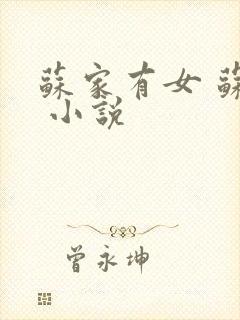 蘇家有女 蘇
小說
曾永坤